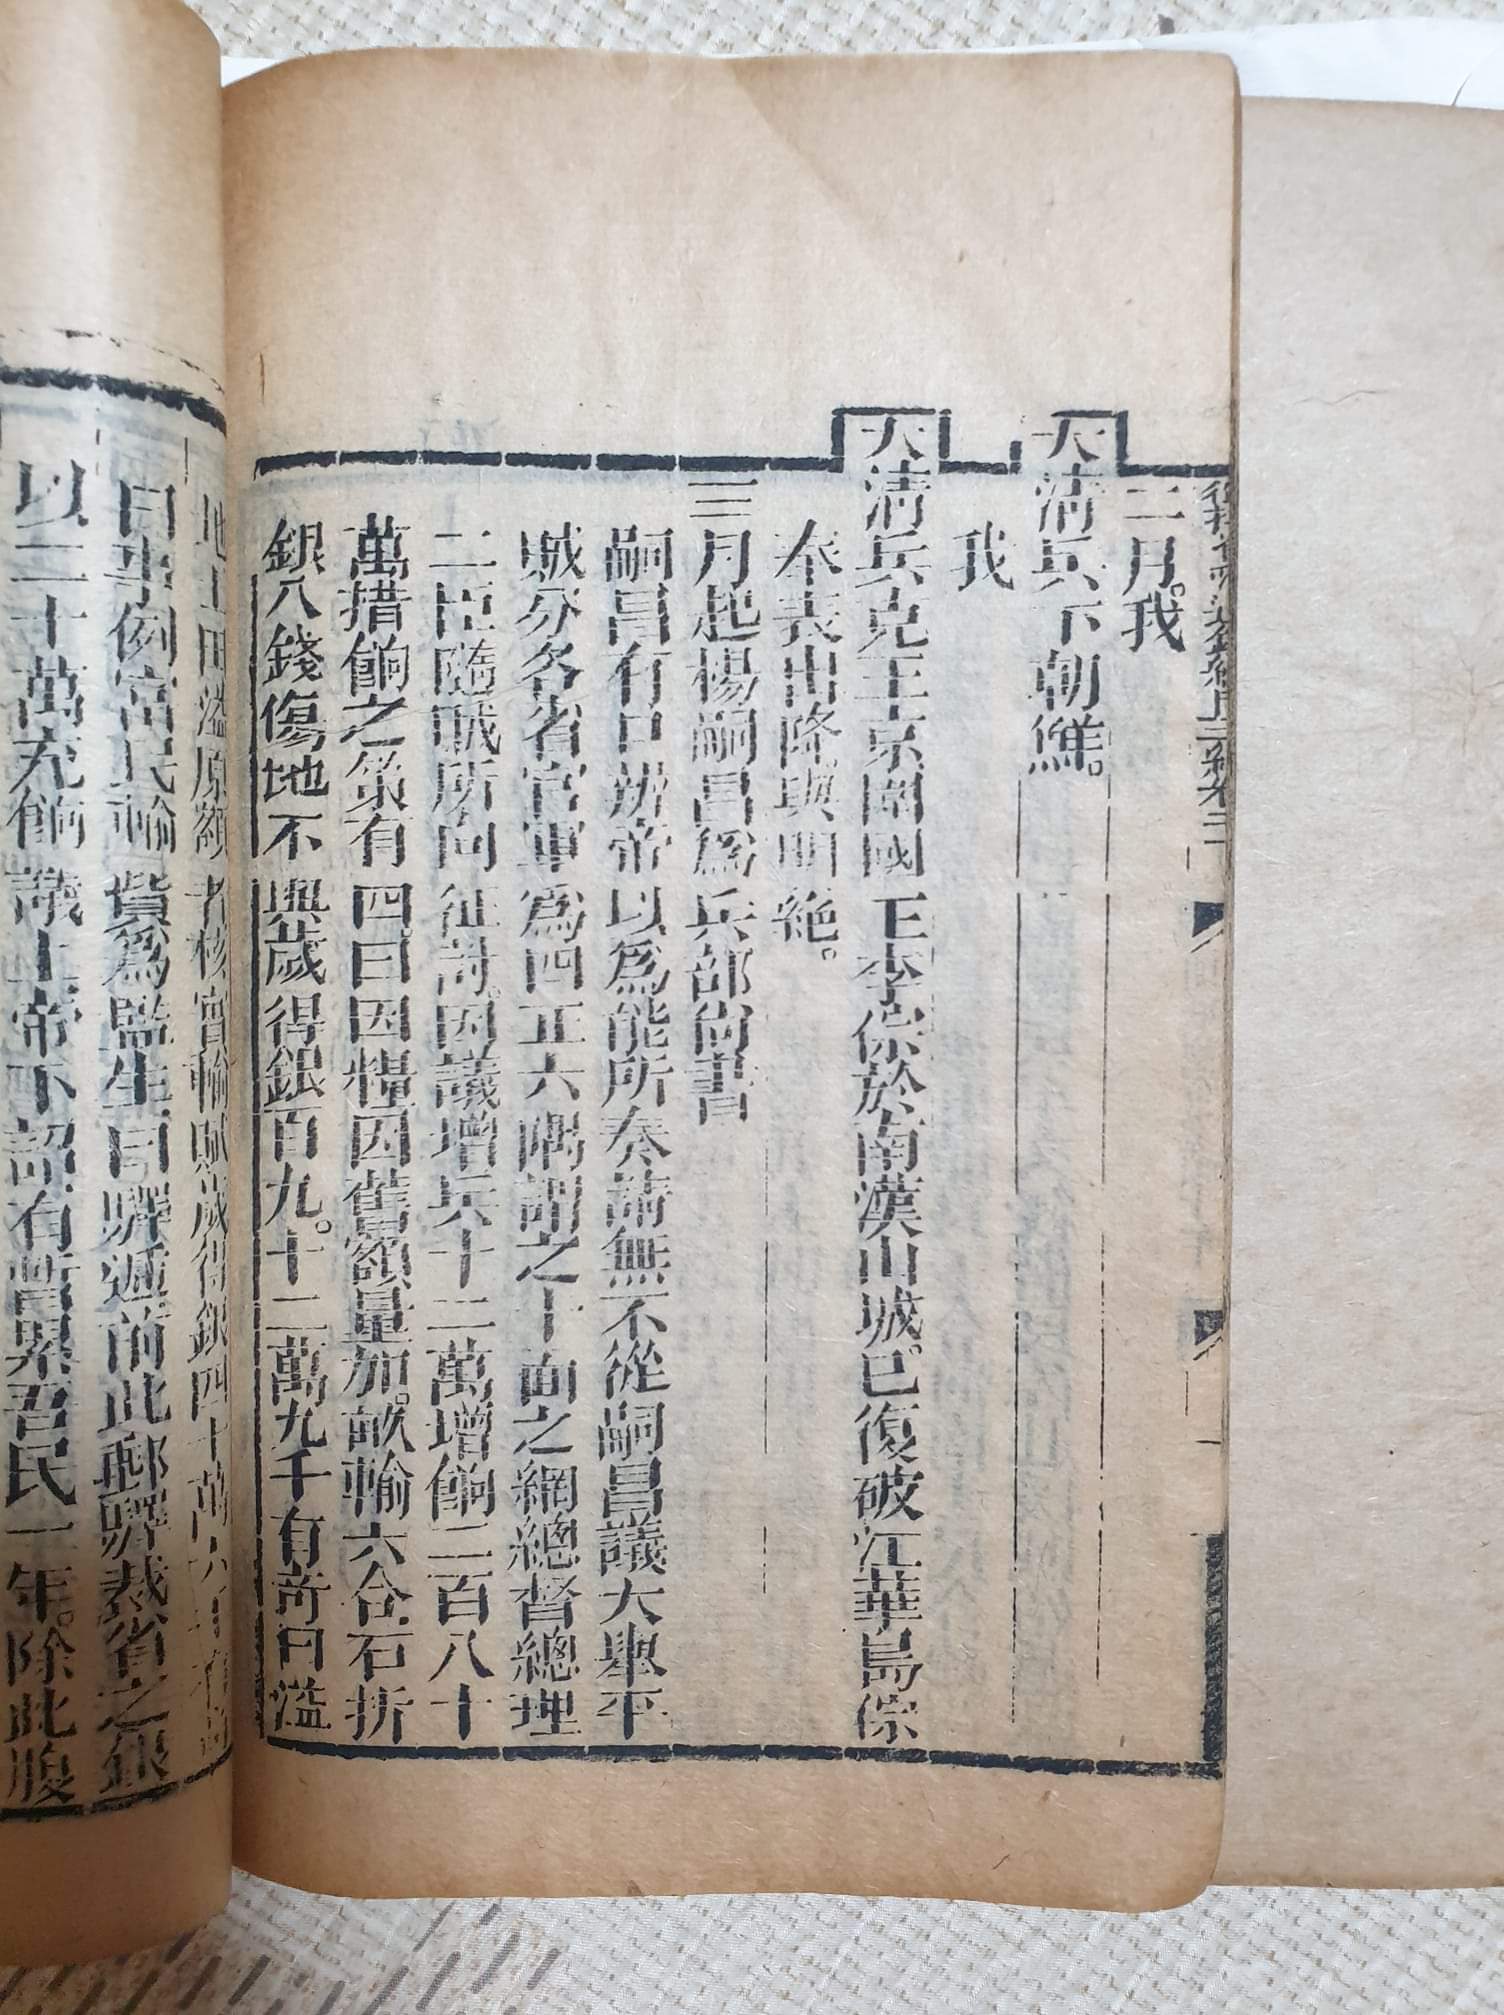 二月。我
大清兵下朝鮮。
我
大清兵克王京圍國王李倧於南漢山城。已復破江華島倧
奉表出降與明絶。
三月起楊嗣昌爲兵部尚書
嗣昌有口辨帝以爲能所奏請無不從嗣昌議大舉平
賊分各省官軍爲四正六隅謂之十面之網總督總理
二臣隨賊所向征討。因議增兵十二萬增餉二百八十
萬措餉之策有四曰因糧因舊額量加。畝輸六合石折
銀八錢傷地不與歲得銀百九。十二萬九千有奇曰溢
地土田溢原額者核實輸賦歲得銀四十萬六千有奇
曰事例富民輸貲爲監生曰驛遞前此郵驛裁省之銀
以二十萬充餉議上帝下詔有暫累吾民一年。除此腹